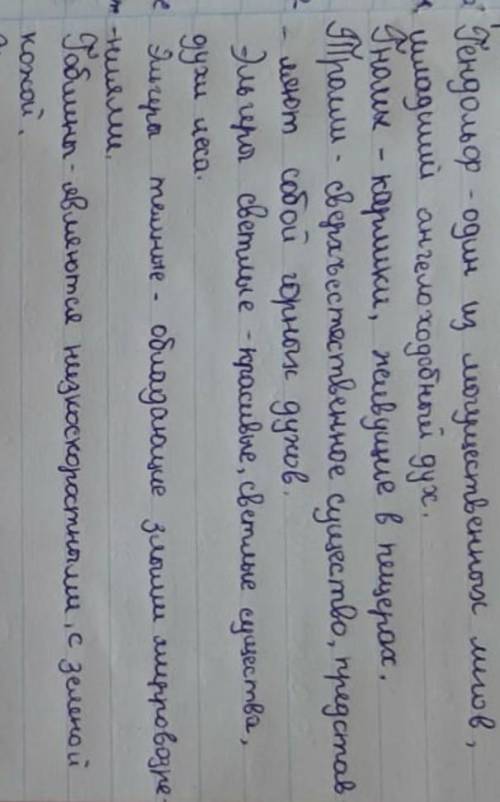 Гендольф - один из могущественных магов,
младший ангелоподобный дух.
Гномы - карлики, живущие в пещерах.
Тролли - сверхъестественное существо, представ
- ляют собой горных духов.
Эльфы светлые - красивые, светлые существа,
духи леса.
Эльфы темные - обладающие злыми
- ниями.
Гоблины - являются низкоскоростными, с зеленой
кожой.